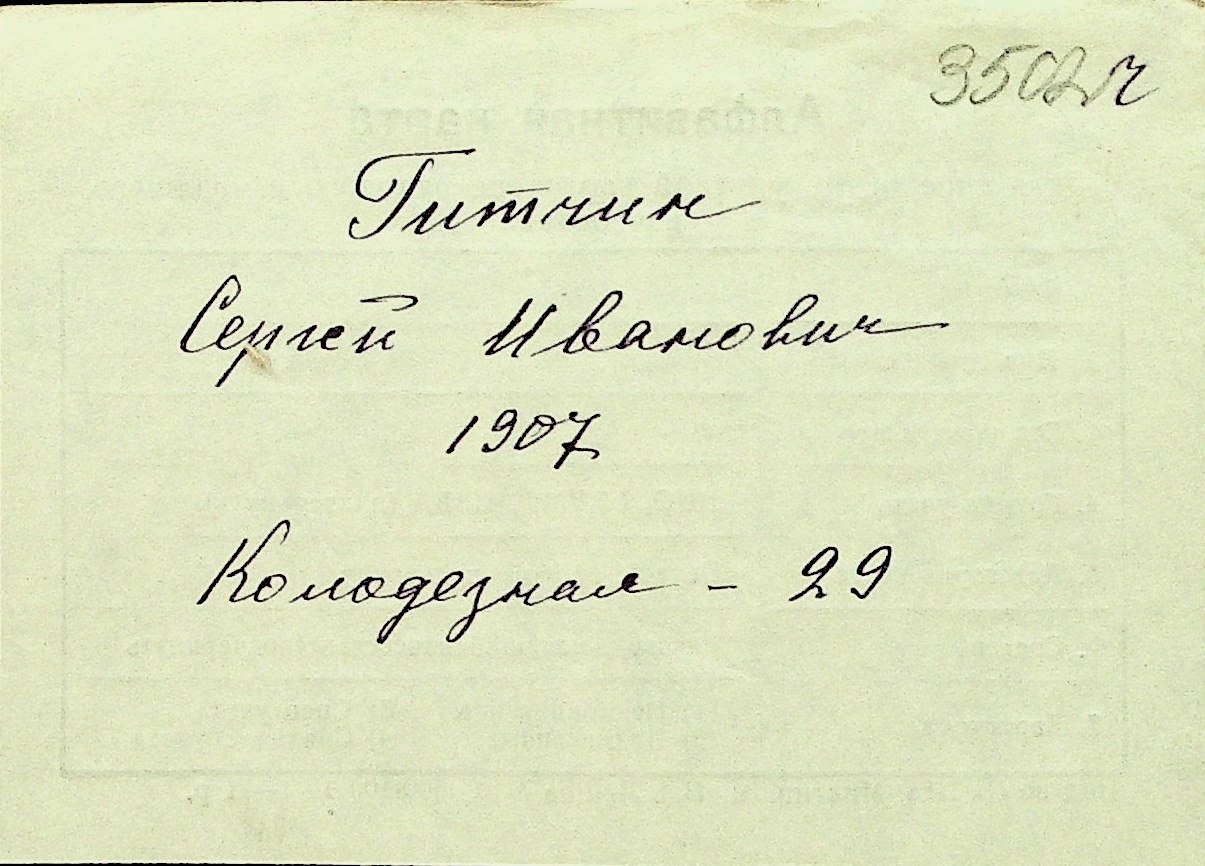 Гитчин
Сергей Иванович
1907
Колодезная - 29